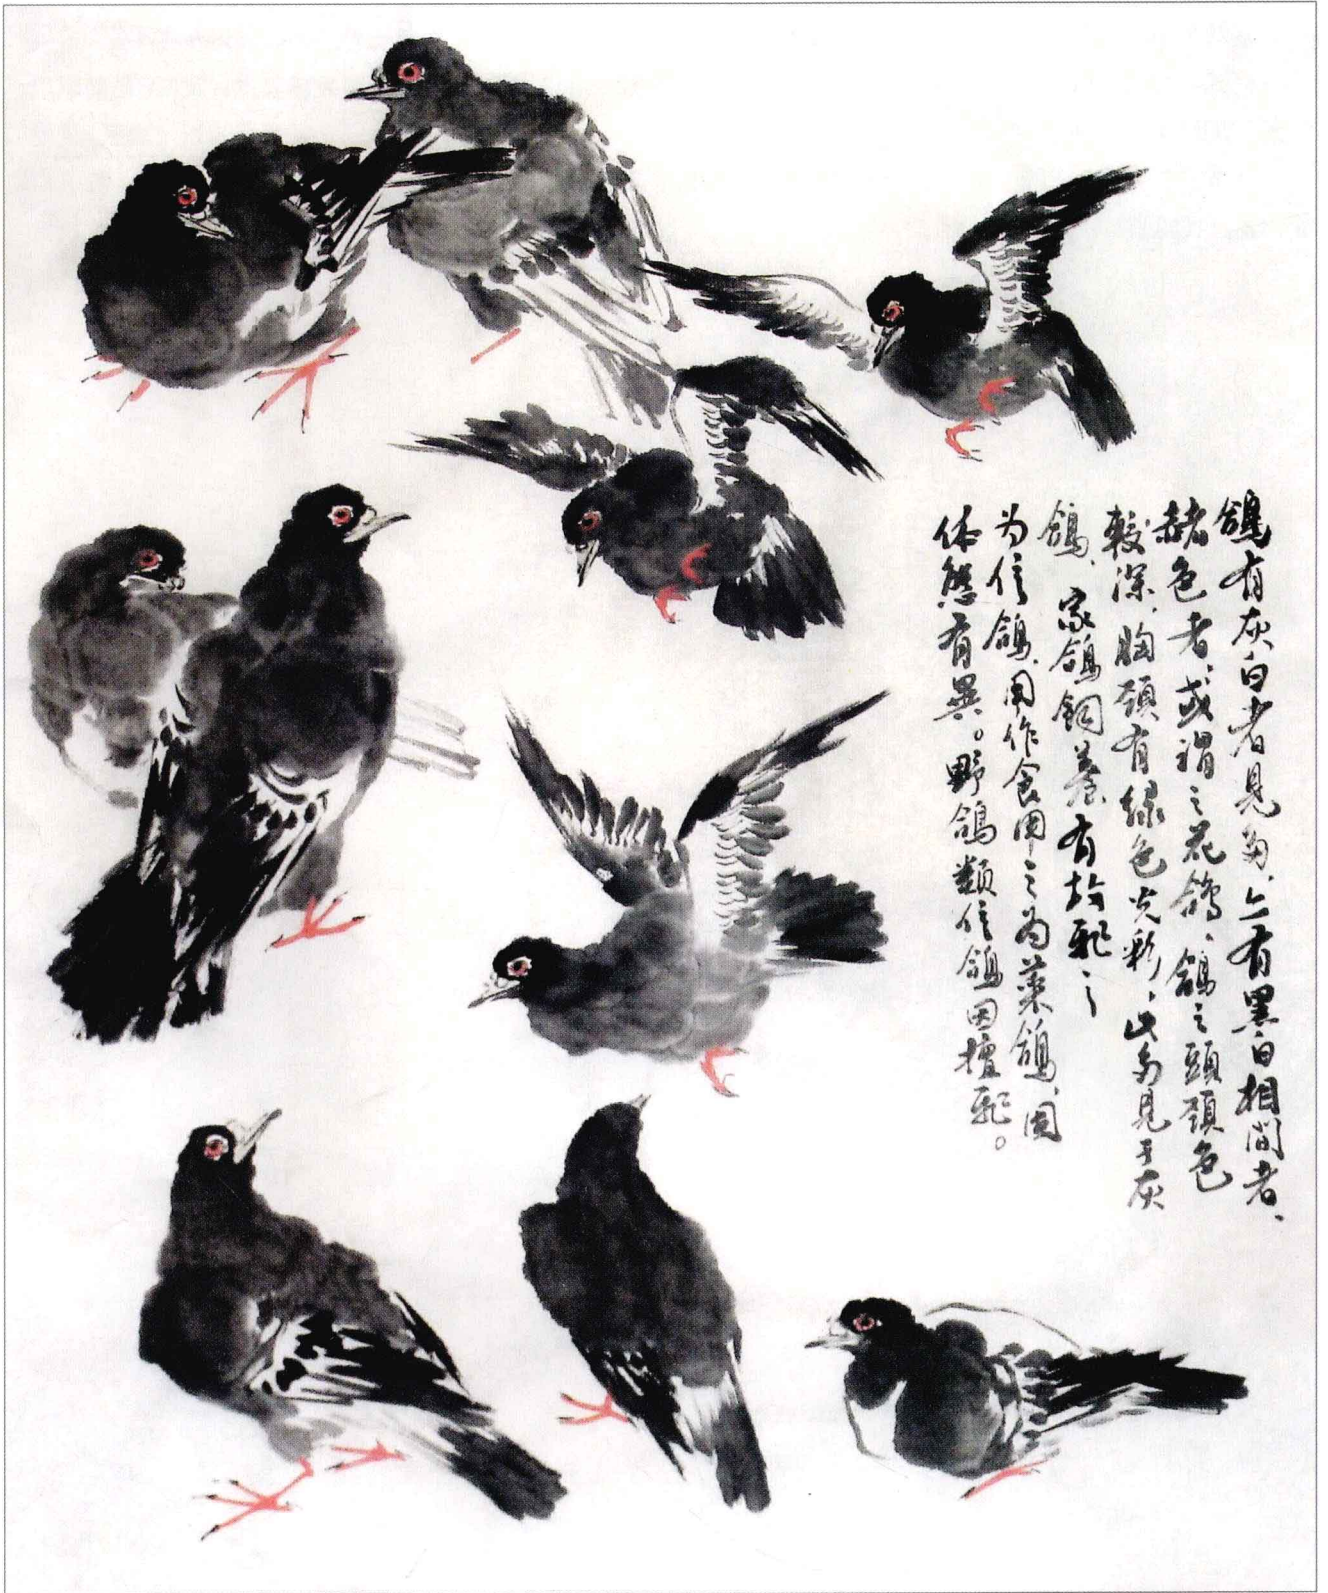 鴿有灰白者見多、亦有黑白相间者、
赭色者、或谓之花鴿、鴿之頭頸色
較深、胸頸有绿色光彩、此多見于灰
鴿、家鴿饲養有放飛之
为信鴿、用作食用之为菜鴿、因
体態有異。野鴿類信鴿因擅飛。